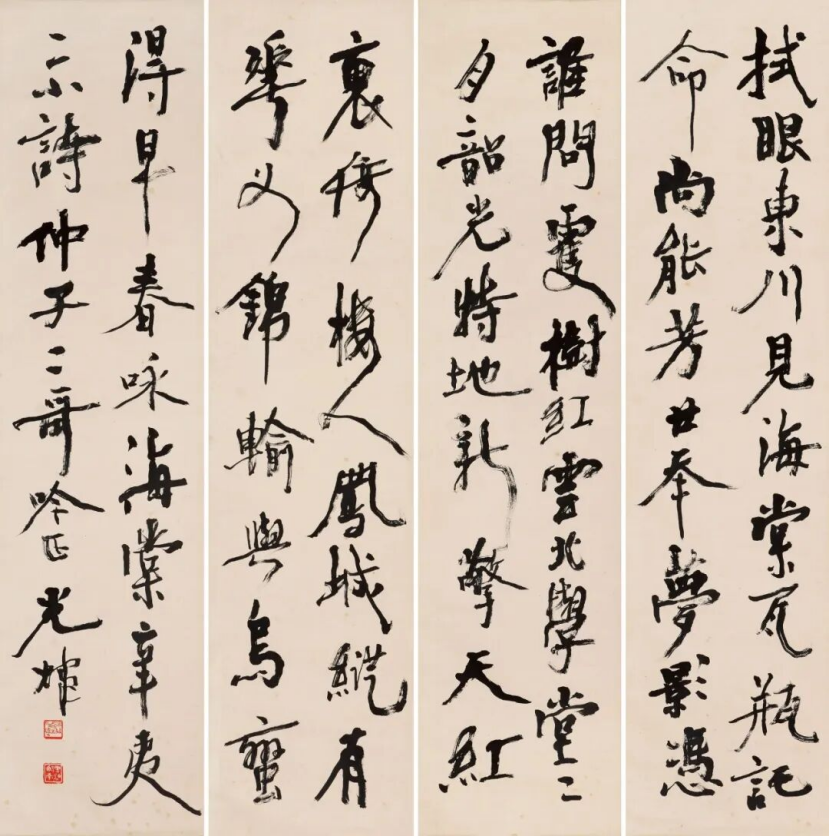 拭眼東川見海棠瓦瓶託
命尚能芳廿年夢影憑
誰問雙樹紅雲北學堂二
月韶光特地新擎天紅
裏倚樓人鳳城縱有
華如錦輸與烏蠻
得早春咏海棠辛夷
二小詩仲子二哥吟正光煒